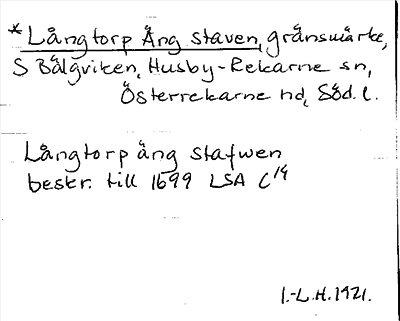 *Långtorp Äng staven, gränsmärke,
S Bälgviken, Husby-Rekarne sn,
Österrekarne hd, Söd. l.
Långtorp äng stafwen
beskr. till 1699 LSA C14
I.-L.H. 1921.